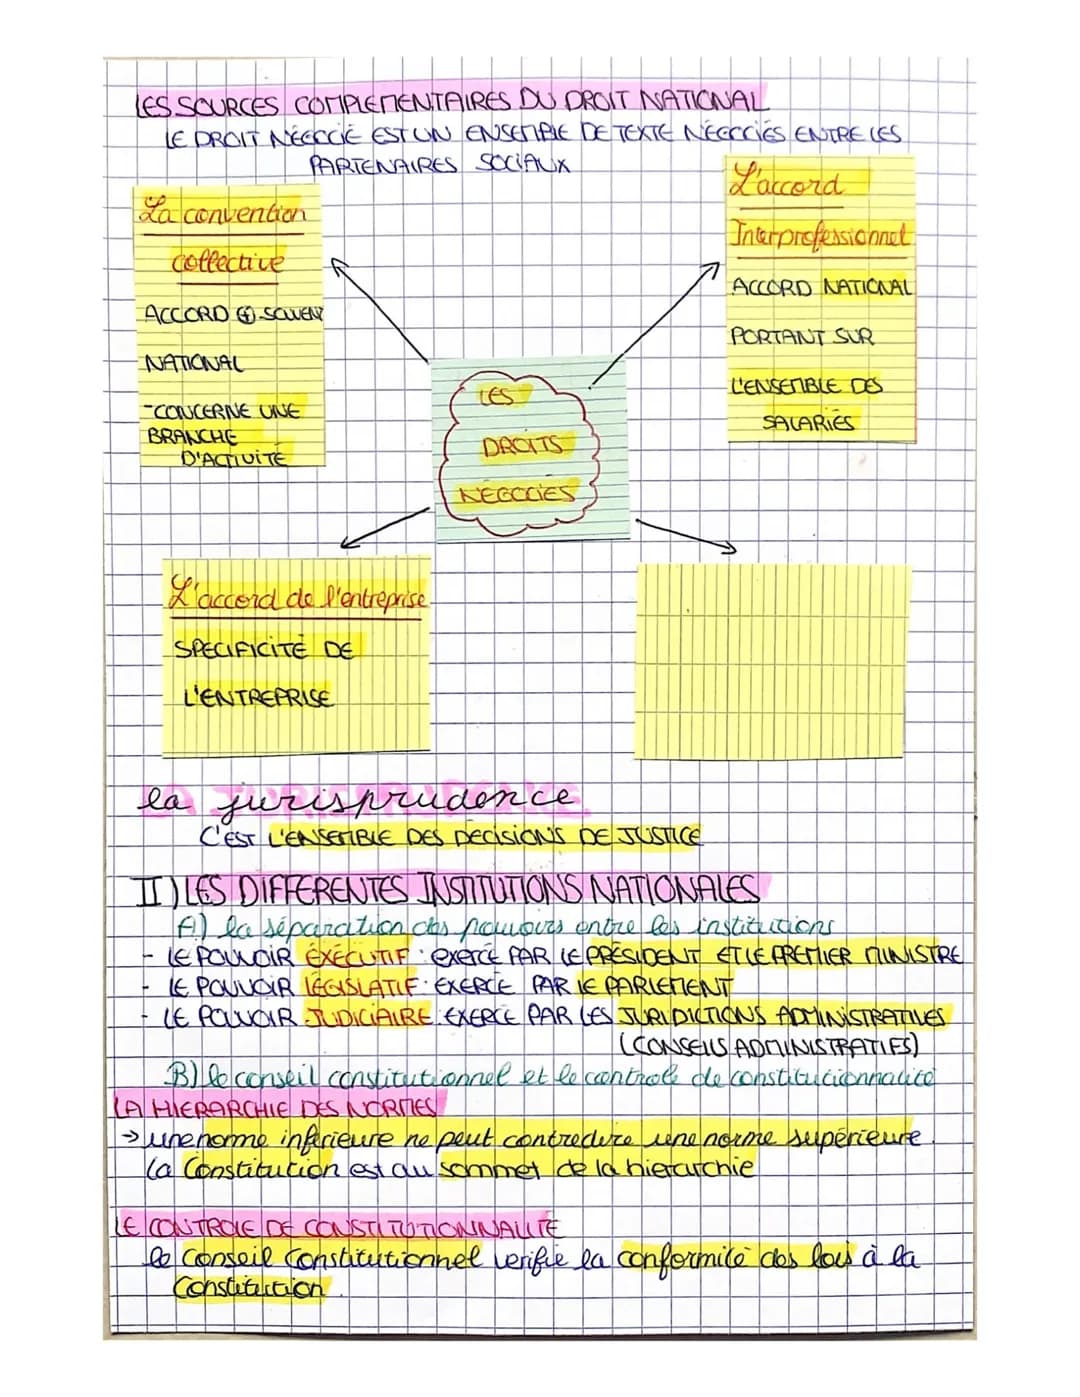 LES SOURCES COMPLEMENTAIRES DU DROIT NATIONAL
LE DROIT NÉGOCIÉ EST UN ENSEMBLE DE TEXTE NÉGOCIÉS ENTRE LES
PARTENAIRES SOCIAUX
La convention
collective
ACCORD ⊕ SOUVENT
NATIONAL
-CONCERNE UNE
BRANCHE
D'ACTIVITÉ
L'accord
Interprofessionnel
ACCORD NATIONAL
PORTANT SUR
L'ENSEMBLE DES
SALARIÉS
LES
DROITS
NEGOCIÉS
L'accord de l'entreprise
SPECIFICITÉ DE
L'ENTREPRISE
la jurisprudence
C'EST L'ENSEMBLE DES DECISIONS DE JUSTICE
II) LES DIFFERENTES INSTITUTIONS NATIONALES
A) la séparation des pouvoirs entre les institutions
- LE POUVOIR ÉXÉCUTIF : EXERCÉ PAR LE PRÉSIDENT ET LE PREMIER MINISTRE
- LE POUVOIR LÉGISLATIF : EXERCÉ PAR LE PARLEMENT
- LE POUVOIR JUDICIAIRE : EXERCÉ PAR LES JURIDICTIONS ADMINISTRATIVES
(CONSEILS ADMINISTRATIFS)
B) le conseil constitutionnel et le controle de constitutionnalité
LA HIERARCHIE DES NORMES
→ une norme inférieure ne peut contredire une norme supérieure.
La Constitution est au sommet de la hierarchie
LE CONTROLE DE CONSTITUTIONNALITE
le Conseil Constitutionnel verifie la conformité des lois à la
Constitution.